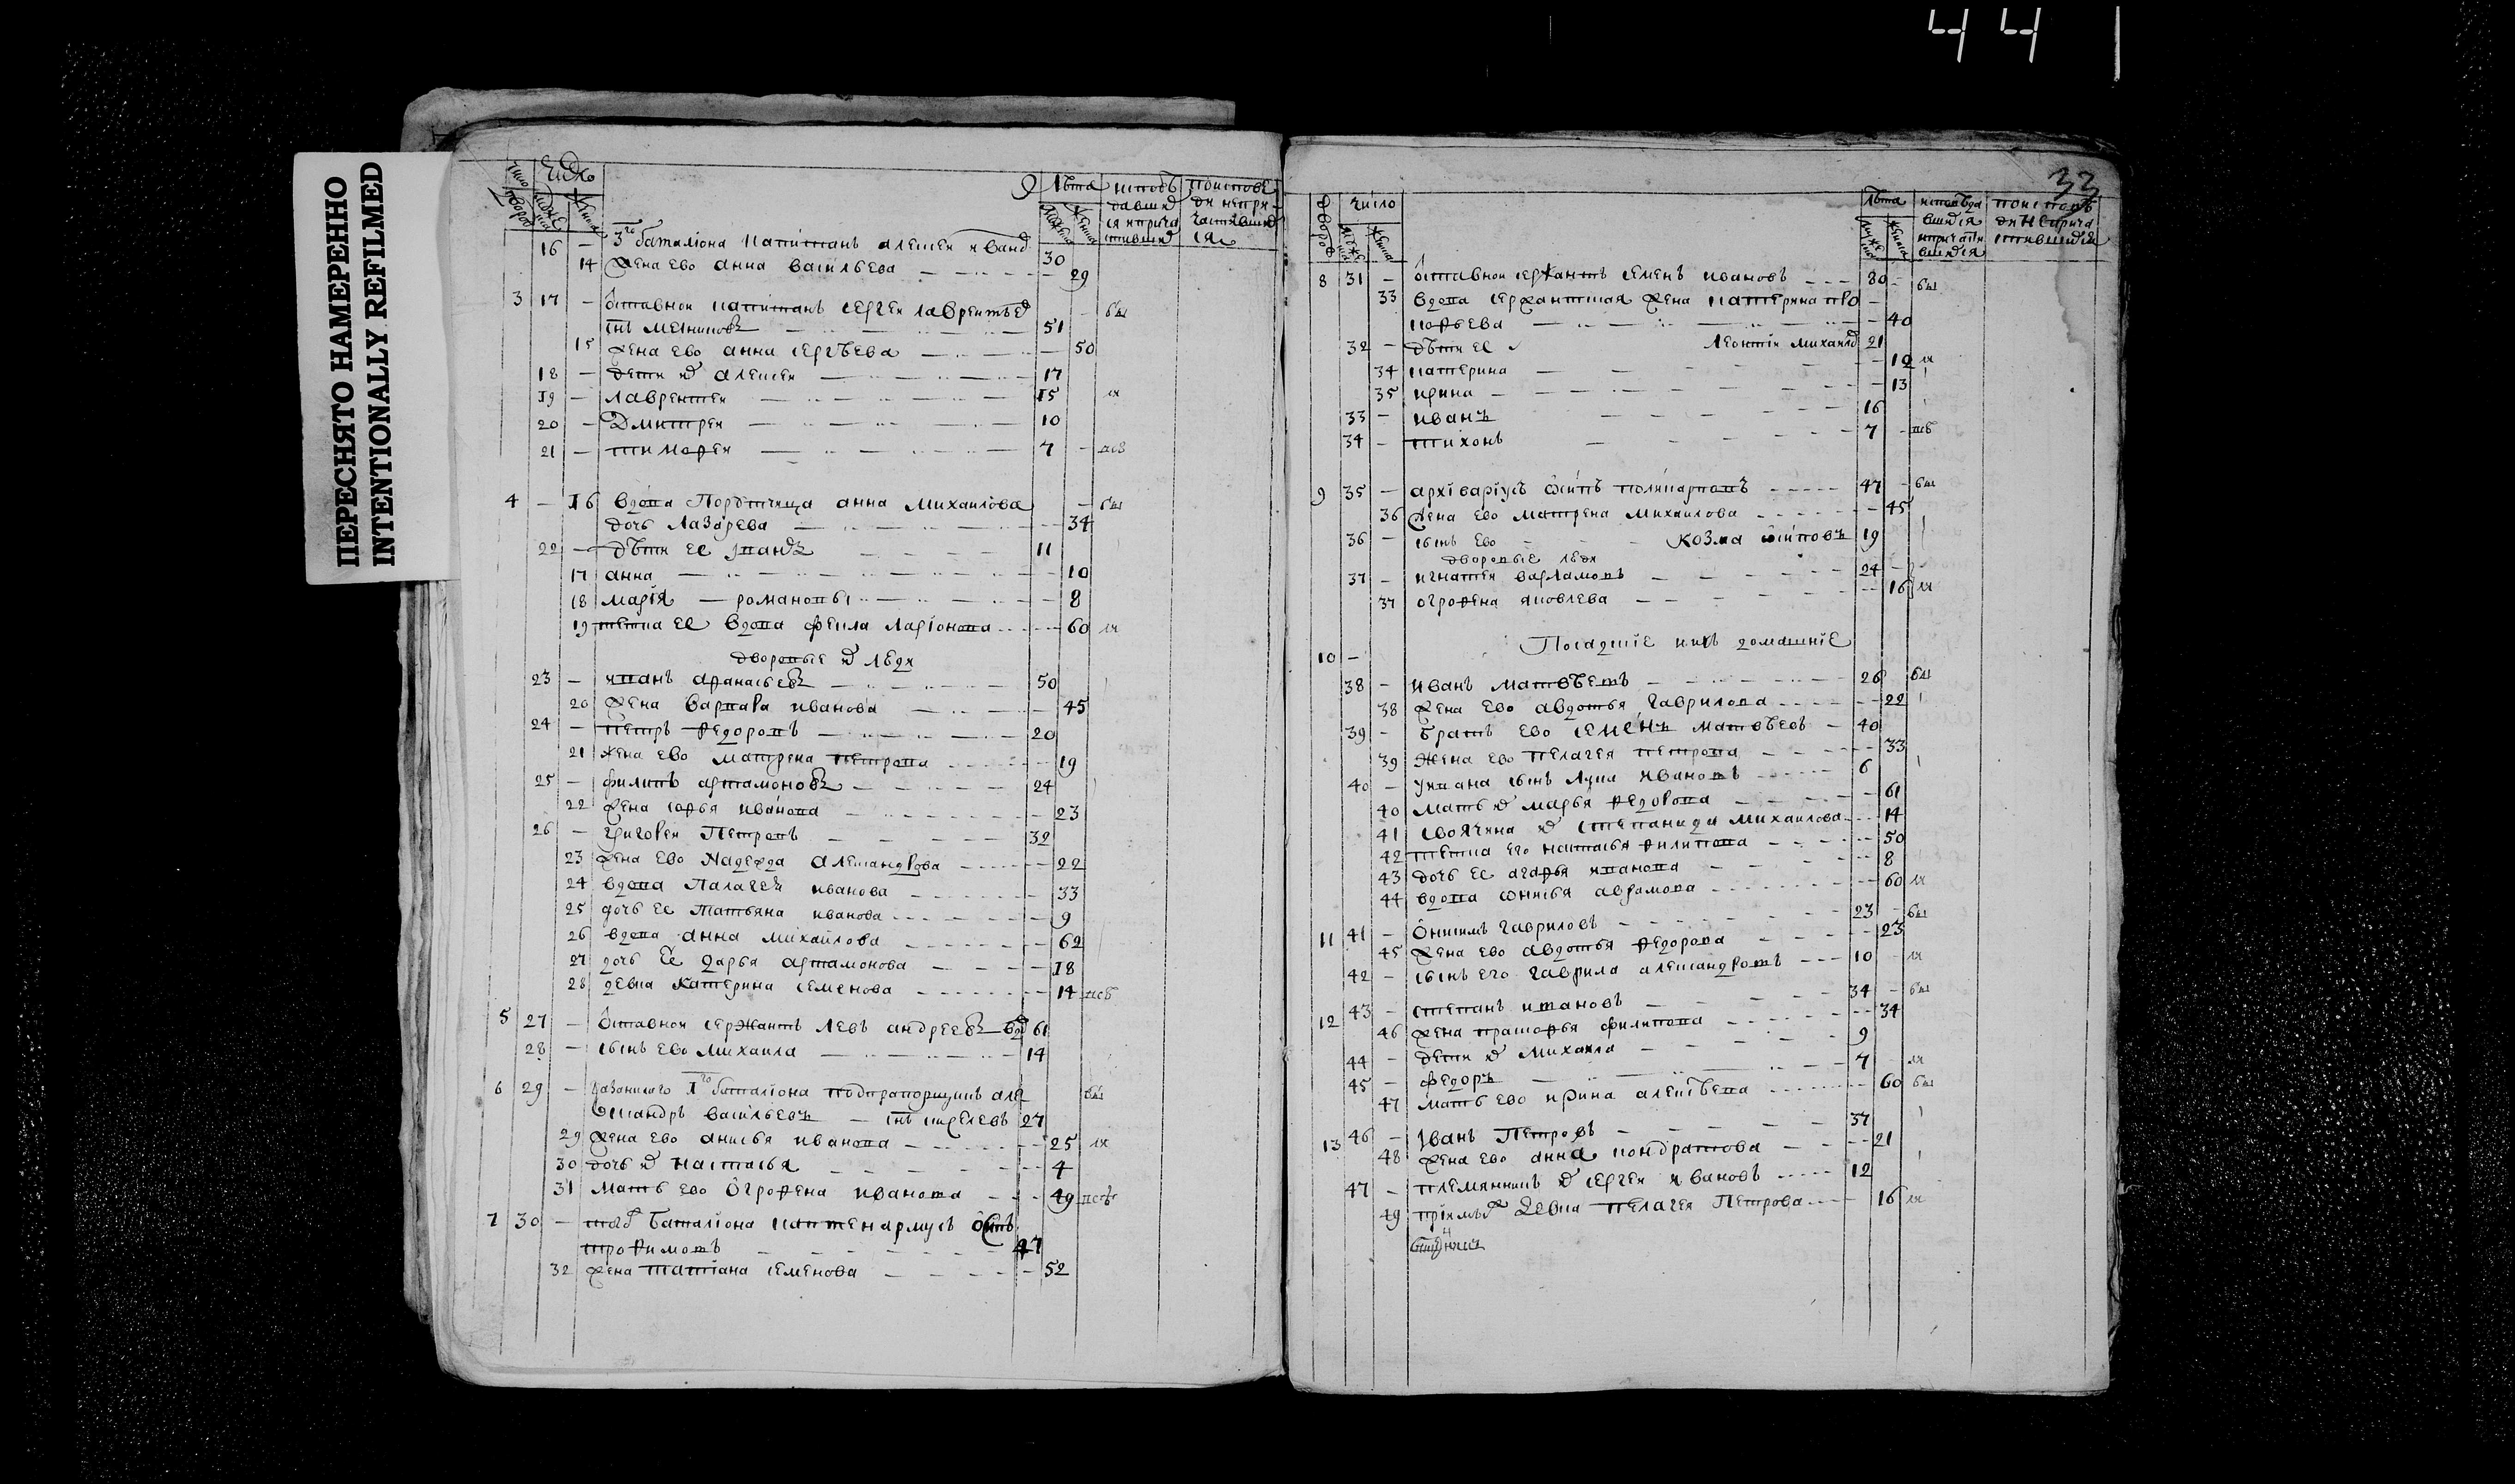 44
ПЕРЕСНЯТО НАМЕРЕННО
INTENTIONALLY REFILMED
число
лѣта
16 — 3го баталiона капитанъ алексеи 30
14 жена ево анна васильева 29
3 17 — ѿставнои капитанъ сергеи лаврентьев бы
51
15 жена ево анна сергѣева 50
18 — дети их алексеи 17
19 — лаврентеи 15 ли
20 — дмитреи 10
21 — тимофеи 7
4 — 16 вдова Порутчица анна михаилова бы
дочь лазарева 34
22 — дѣти ее 11
17 анна 10
18 марiя романовы 8
19 тетка ее вдова фекла ларiонова 60 ли
дворовые их люди
23 — иванъ афанасьевъ 50
20 жена варвара иванова 45
24 — петръ федоровъ 20
21 жена ево матрена петрова 19
25 — филипъ артамоновъ 24
22 жена софья иванова 23
26 — григореи петровъ 32
23 жена ево надежда александрова 22
24 вдова палагея иванова 33
25 дочь ее татьяна иванова 9
26 вдова анна михаилова 62
27 дочь ее дарья артамонова 18
28 девка катерина семенова 14
5 27 — ѿставнои сержантъ левъ андреевъ вдов 61
28 — сынъ ево михаила 14
6 29 — казанского 1го баталiона подпрапорщикъ але бы
ѯандръ васильевъ 27
29 жена ево анисья иванова 25 ли
30 дочь их настасья 4
31 мать ево огрофена иванова 49
7 30 — баталiона каптенармусъ
трофимовъ 47
32 жена татiана семенова 52
33
число
лѣта
8 31 — ѿставнои сержантъ семенъ ивановъ 80 бы
33 вдова сержантская жена катерина про
кофьева 40
32 — дѣти ее леонтiи михаилов 21
34 катерина 12 ли
35 ирина 13
33 — иванъ 16
34 — тихонъ 7
9 35 — архiварiусъ ѡсипъ поликарповъ 47 бы
36 жена ево матрена михаилова 45
36 — сынъ ево козма ѡсиповъ 19
дворовые люди
37 — игнатеи варламовъ 24
37 огрофена яковлева 16 ли
Посацкiе и ихъ домашнiе
10 —
38 — иванъ матвѣевъ 26 бы
38 жена ево авдотья гаврилова 22
39 — братъ ево семенъ матвѣевъ 40
39 жена ево пелагея петрова 33
40 — у ивана сынъ лука ивановъ 6
40 мать их марья федорова 61
41 своячина их степанида михаилова 14
42 тетка его наталья филипова 50
43 дочь ее агафья иванова 8
44 вдова ѡнисья аврамова 60 ли
11 41 — Онисимъ гавриловъ 23 бы
45 жена ево авдотья федорова 23
42 — сынъ его гаврила александровъ 10 ли
12 43 — степанъ ивановъ 34 бы
46 жена прасковья филипова 34
44 — дети их михаила 9
45 — федоръ 7 ли
47 мать ево ирина алексѣева 60 бы
13 46 — Iванъ Петровъ 37
48 жена ево анна кондратова 21
47 — племянникъ их сергеи ивановъ 12
49 девка пелагея петрова 16 ли